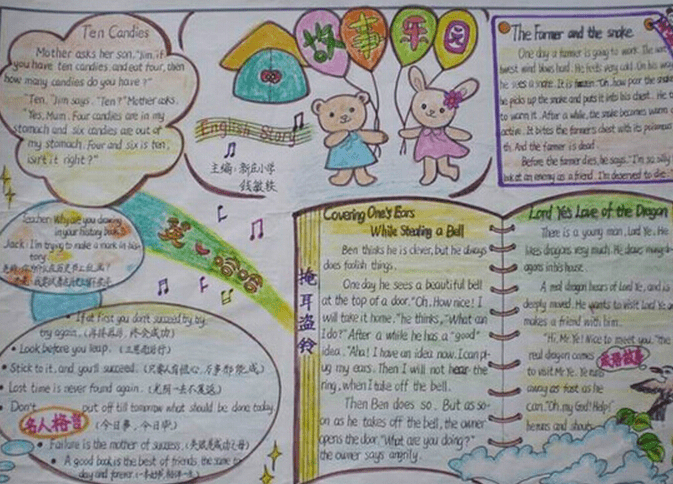 Ten Candies
Mother asks her son, "Jim, if
you have ten candies, and eat four, then
how many candies do you have?"
"Ten," Jim says. "Ten?" Mother asks.
"Yes, Mum. Four candies are in my
stomach and six candies are out of
my stomach. Four and six is ten,
isn't it right?"
故事乐园
English Story
主编:新庄小学
钱敏轶
The Farmer and the snake
One day a farmer is going to work. The
west wind blows hard. He feels very cold. On his way
he sees a snake. It is frozen. "Oh, how poor the snake
he picks up the snake and puts it into his chest. He
to warm it. After a while, the snake becomes warm
active. It bites the farmer's chest with its poisonous
th. And the farmer is dead.
Before the farmer dies, he says, "I'm so silly
look at an enemy as a friend. I'm deserved to die
Teacher: Why are you drawing
in your history book
Jack: I'm trying to make a mark in his
tory.
英
哈哈
If at first you don't succeed, try, try,
try again. (再接再厉,终会成功)
Look before you leap. (三思而后行)
Stick to it, and you'll succeed. (只要人有恒心,万事都能成)
Lost time is never found again. (光阴一去不复返)
Don't put off till tomorrow what should be done today.
名人格言 (今日事,今日毕)
Failure is the mother of success. (失败是成功之母)
A good book is the best of friends, the same to
day and forever.
掩耳盗铃
Covering One's Ears
While Stealing a Bell
Ben thinks he is clever, but he always
does foolish things.
One day he sees a beautiful bell
at the top of a door. "Oh, How nice! I
will take it home." he thinks, "What can
I do?" After a while he has a "good"
idea. "Aha! I have an idea now. I can pl-
ug my ears. Then I will not hear the
ring, when I take off the bell.
Then Ben does so. But as so-
on as he takes off the bell, the owner
opens the door. "What are you doing?"
the owner says angrily.
Lord Ye's Love of the Dragon
There is a young man, Lord Ye. He
likes dragons very much. He draws many dr-
agons in his house.
A real dragon hears of Lord Ye, and is
deeply moved. He wants to visit Lord Ye an
makes a friend with him.
"Hi, Mr. Ye! Nice to meet you," the
real dragon comes
to visit Mr Ye. Ye runs
away as fast as he
can. "Oh, my God! Help!"
he runs and shouts.
成语故事